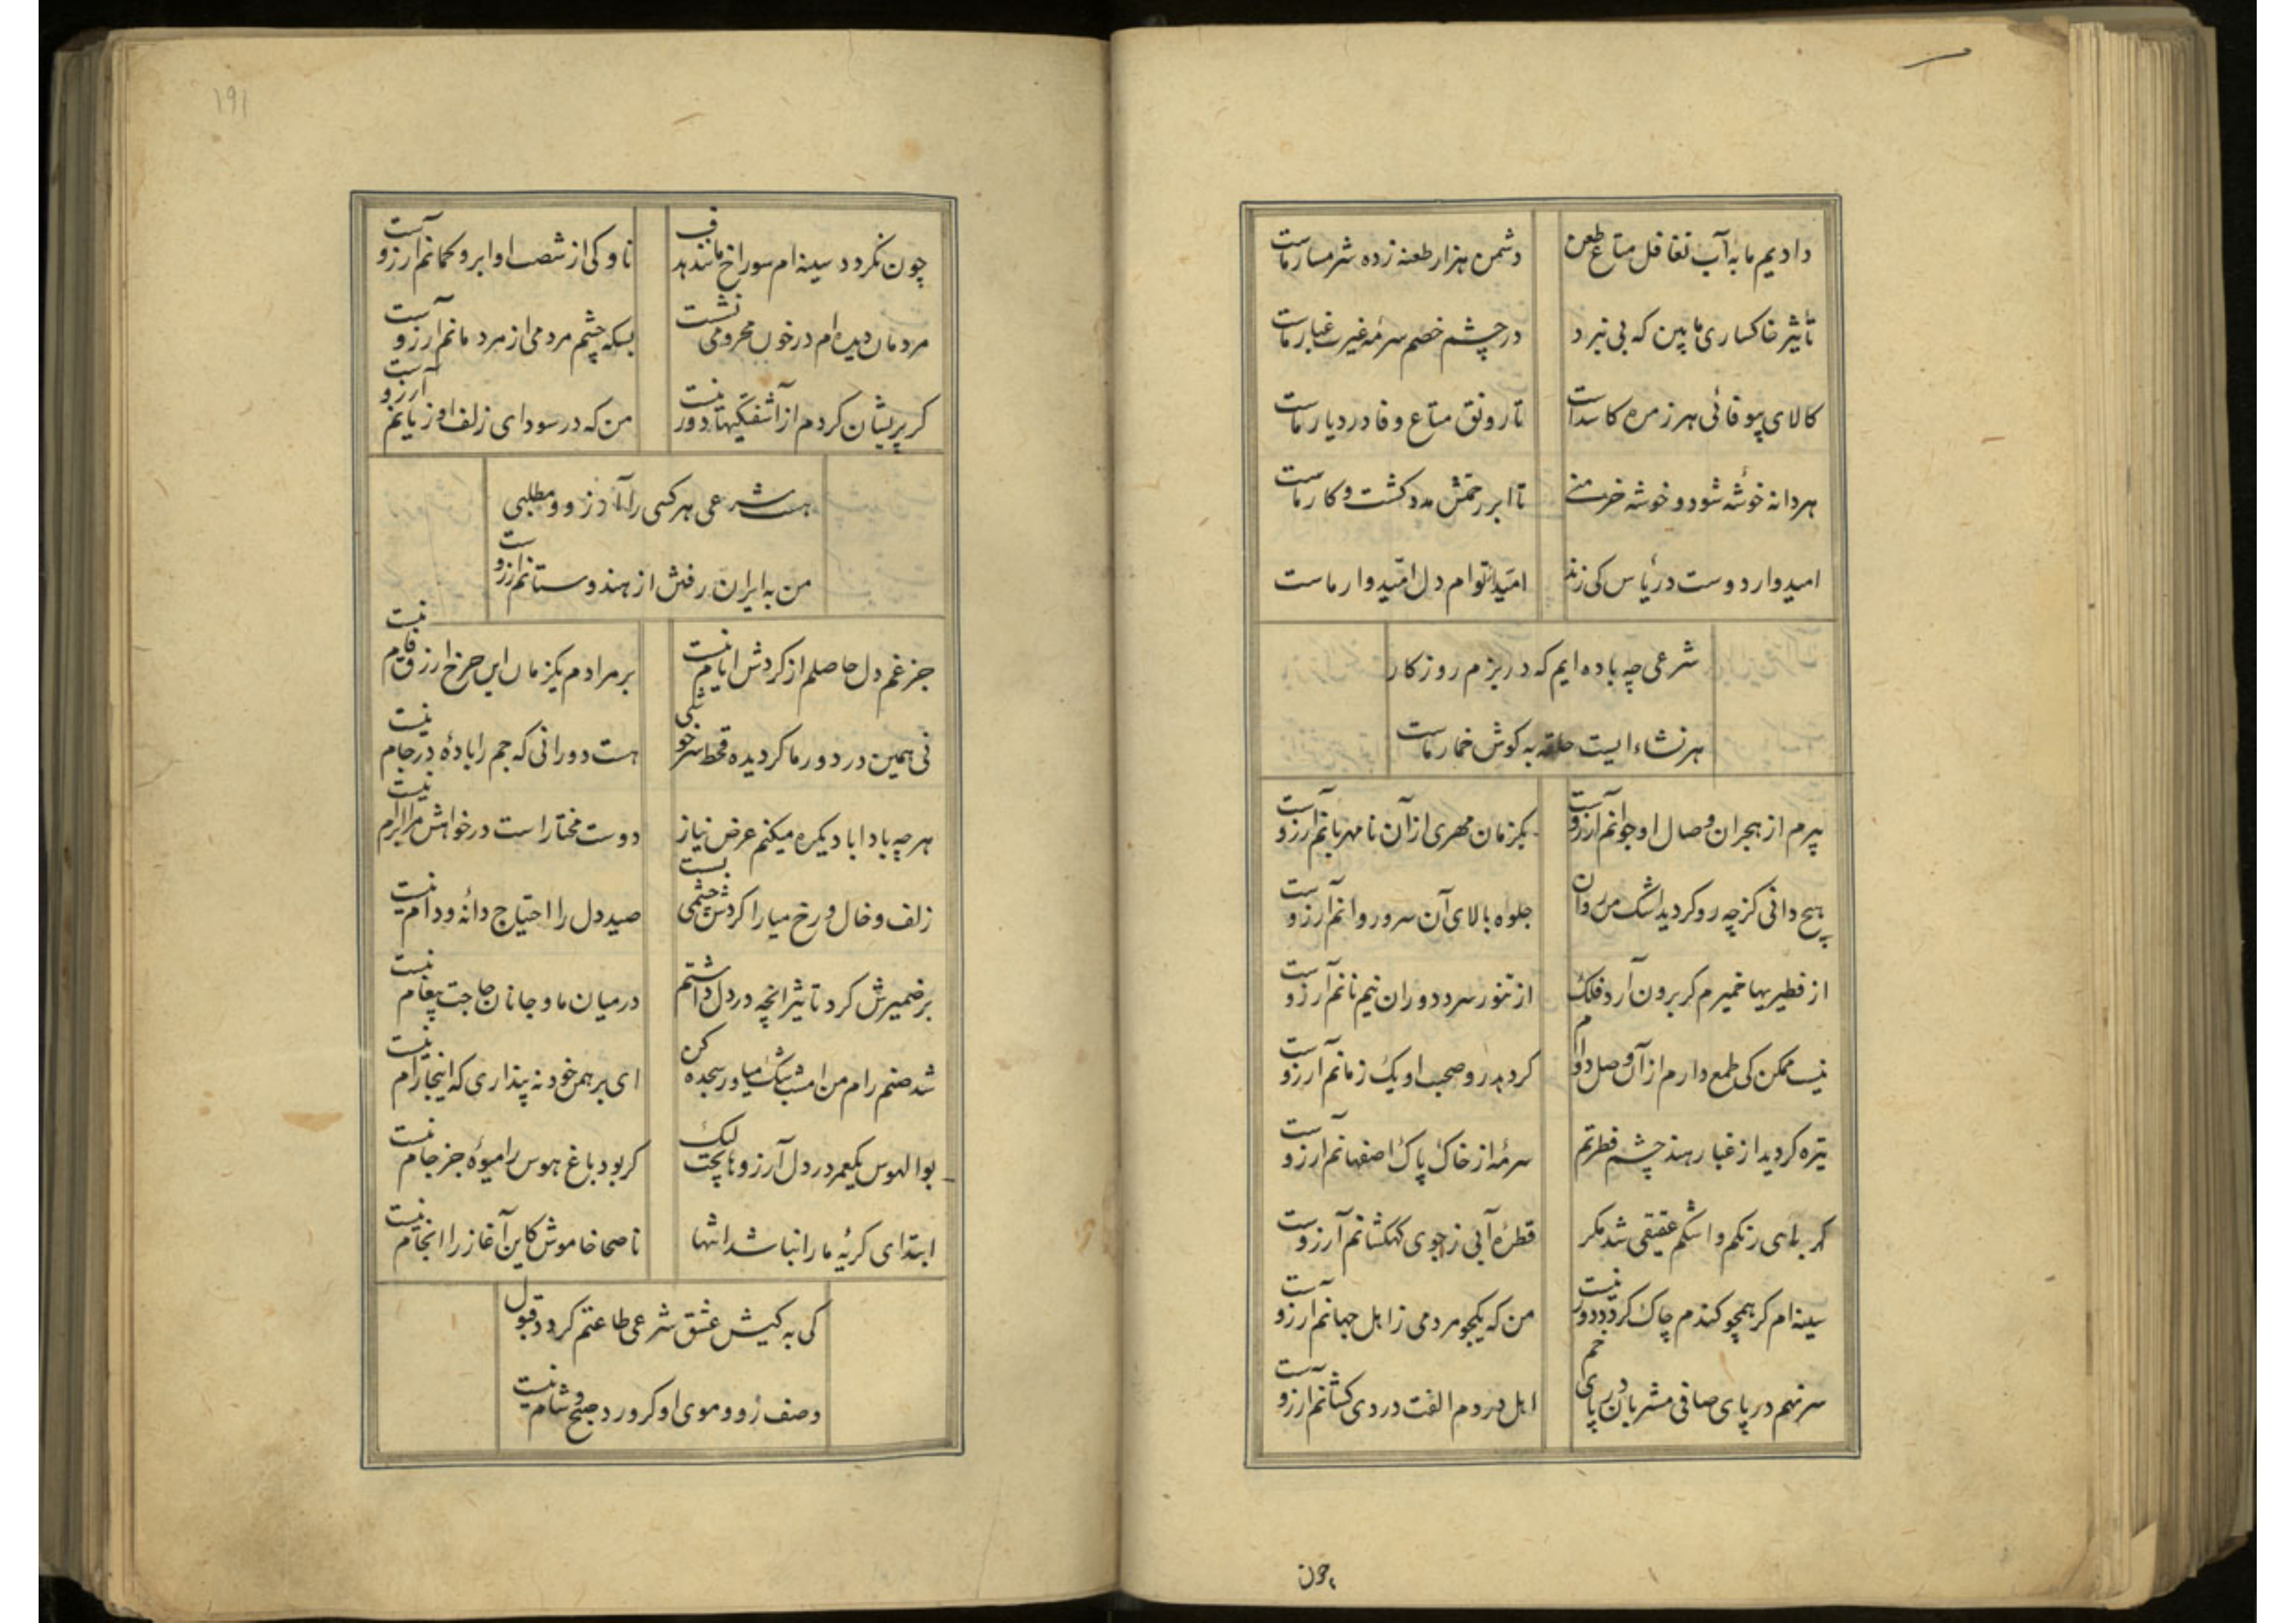 دادیم ما به آب تغافل متاع طعن
دشمن هزار طعنه زده شرمسار ماست
تأثیر خاکساری ما بین که بی نبرد
در چشم خصم سرمه غیرت غبار ماست
کالای بیوفائی هر زمره کاسد است
تا رونق متاع وفا در دیار ماست
هر دانه خوشه شود و خوشه خرمنی
تا ابر رحمتش مدد کشت و کار ماست
امیدوار دوست در یأس کی زند
امید توام دل امیدوار ماست
شرعی چه باده ایم که در بزم روزکار
هر نشاء ایست حلقه به کوش خمار ماست
پیرم از هجران وصال او جوانم آرزوست
یکزمان مهری از آن نامهربانم آرزوست
هیچ دانی کز چه رو کردید اشک من روان
جلوه بالای آن سرو روانم آرزوست
از فطیریها خمیرم کر برون آرد فلک
از تنور سرد دوران نیم نانم آرزوست
نیست ممکن کی طمع دارم از آن وصل دوام
کردهد رو صحبت او یک زمانم آرزوست
تیره کردید از غبار هند چشم فطرتم
سرمهٔ از خاک پاک اصفهانم آرزوست
کهربا هی رنکم و اشکم عقیقی شد مکر
قطرهٔ آبی ز جوی کهکشانم آرزوست
سینه ام کر همچو کندم چاک کردد دور نیست
من که یکجو مردمی ز اهل جهانم آرزوست
سر نهم در پای صافی مشربان در پای خم
اهل دردم الفت دردی کشانم آرزوست
چون
۱۹۱
چون نکردد سینه ام سوراخ مانند هدف
ناوکی از شصت او ابرو کمانم آرزوست
مردمان دیده ام در خون محرومی نشست
بسکه چشم مردمی از مردمانم آرزوست
کر پریشان کردم از آشفتکیها دور نیست
من که در سودای زلف او زیانم آرزوست
هست شرعی هر کسی را آرزو و مطلبی
من به ایران رفتن از هندوستانم آرزوست
جز غم دل حاصلم از کردش ایام نیست
بر مرادم یکزمان این چرخ ازرق فام نیست
نی همین در دور ما کردیده قحط سرخوشی
هست دورانی که جم را بادهٔ در جام نیست
هر چه باداباد یکره میکنم عرض نیاز
دوست مختار است در خواهش مرا ابرام نیست
زلف و خال و رخ میارا کردش چشمی بست
صید دل را احتیاج دانه و دام نیست
بر ضمیرش کرد تاثیر آنچه در دل داشتم
در میان ما و جانان حاجت پیغام نیست
شد صنم رام من امشب شک میاور سجده کن
ای برهمن خود نه پنداری که اینجا رام نیست
بوالهوس یکعمر در دل آرزوها پخت لیک
کر بود باغ هوس را میوهٔ جز خام نیست
ابتدای کریهٔ ما را نباشد انتها
ناصحا خاموش کاین آغاز را انجام نیست
کی به کیش عشق شرعی طاعتم کردد قبول
وصف رو و موی او کر ورد صبح و شام نیست